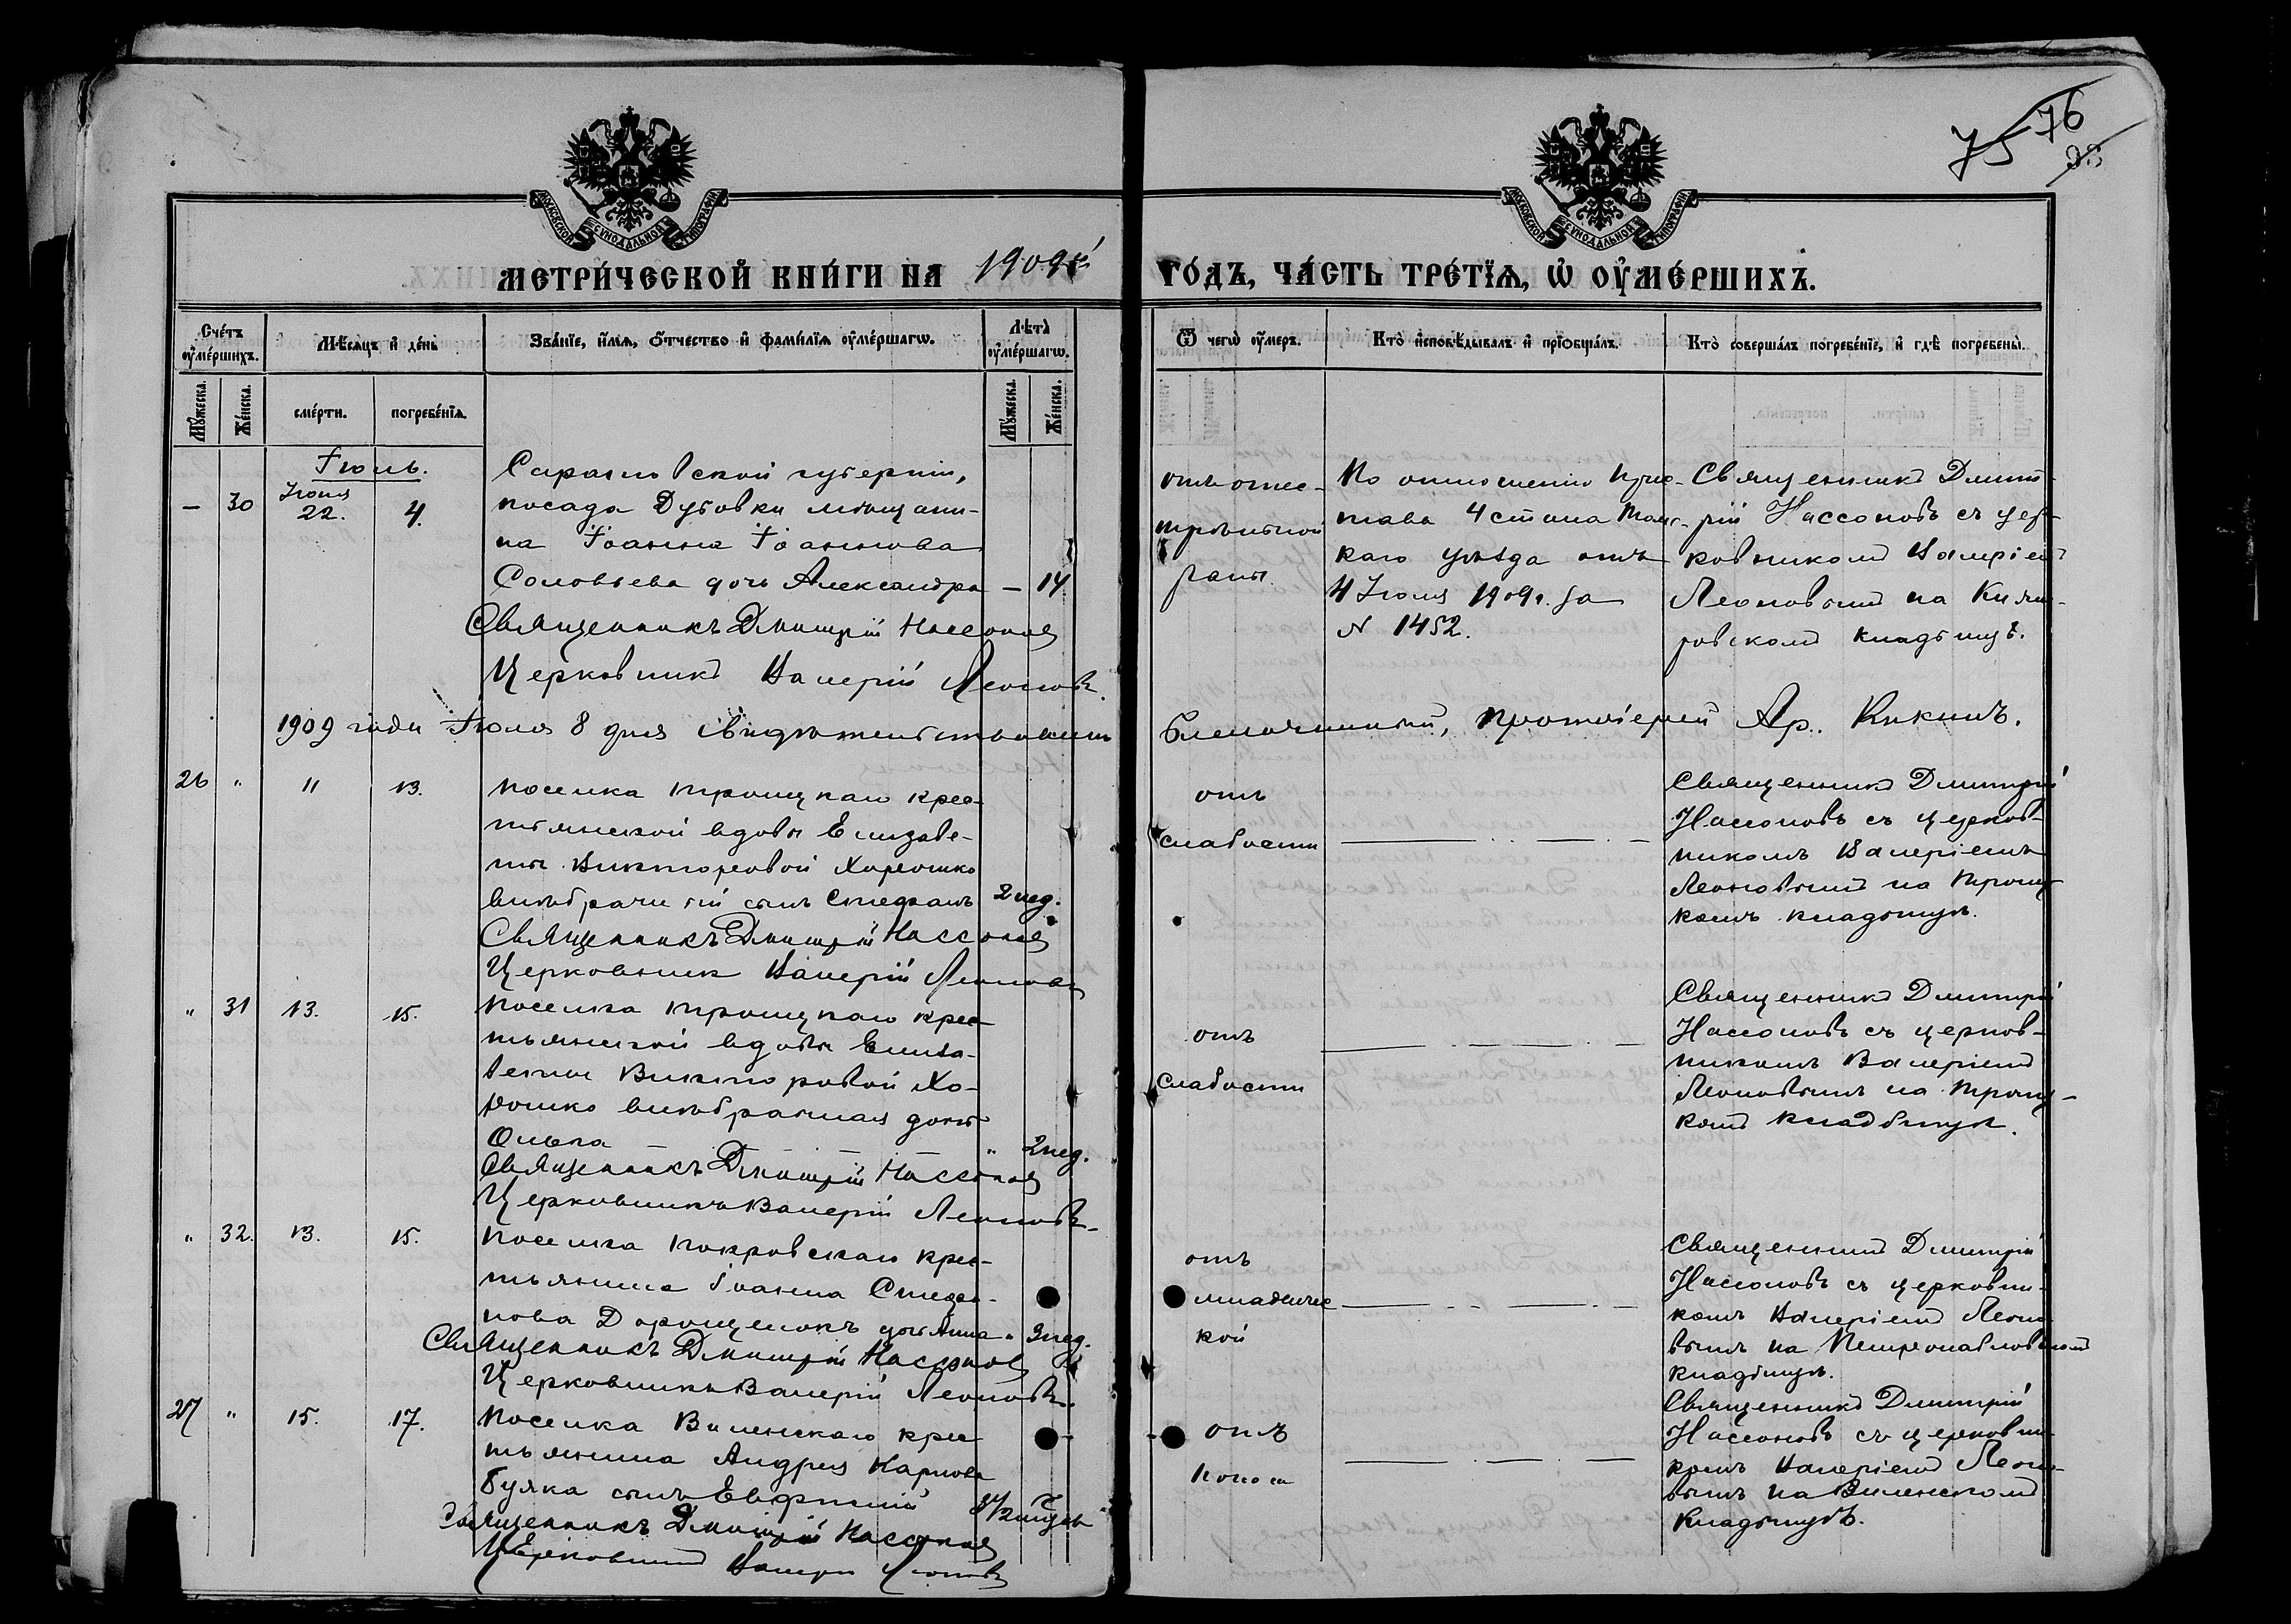 75 76
МОСКОВСКОЙ СѴНОДАЛЬНОЙ ТИПОГРАФІИ
МОСКОВСКОЙ СѴНОДАЛЬНОЙ ТИПОГРАФІИ
МЕТРИ́ЧЕСКОЙ КНИ́ГИ НА 1909й ГО́ДЪ, ЧА́СТЬ ТРЕ́ТЇѦ, Ѡ ОУ҆МЕ́РШИХЪ.
Сче́тъ оу҆ме́ршихъ.
Мѣ́сяцъ и҆ де́нь
Зва́нїе, и҆́мѧ, ѻ҆́тчество и҆ фами́лїѧ оу҆ме́ршагѡ.
Лѣ́та оу҆ме́ршагѡ.
Ѿ чегѡ̀ оу҆́меръ.
Кто̀ и҆сповѣ́дывалъ и҆ прїѡбща́лъ.
Кто̀ соверша́лъ погребе́нїе, и҆ гдѣ̀ погребены̀.
Мꙋ́жеска.
Же́нска.
сме́рти.
погребе́нїѧ.
Мꙋ́жеска.
Же́нска.
Іюль.
– 30
Іюня 22.
4.
Саратовской губерніи,
посада Дубовки мѣщани-
на Іоанна Іоаннова
Соловьева дочь Александра – 14.
Священникъ Дмитрій Нассоновъ
Церковникъ Валерій Леоновъ.
отъ огнес-
трѣльной
раны.
По отношенію При-
става 4 стана Томс-
каго уѣзда отъ
4 Іюля 1909 г. за
№ 1452.
Священникъ Дмит-
рій Нассоновъ съ цер-
ковникомъ Валеріемъ
Леоновымъ на
кладбищѣ.
1909 года Іюля 8 дня свидѣтельствовалъ Благочинный, протоіерей Ар. Кикинъ.
26 " 11 13.
поселка Троицкаго крес-
тьянской вдовы Елизаве-
ты Викторовой Хорошко
внѣбрачный сынъ Стефанъ 2 нед.
Священникъ Дмитрій Нассоновъ
Церковникъ Валерій Леоновъ
отъ
слабости
Священникъ Дмитрій
Нассоновъ съ церков-
никомъ Валеріемъ
Леоновымъ на Троиц-
комъ кладбищѣ.
" 31 13. 15.
Поселка Троицкаго крес-
тьянской вдовы Елиза-
веты Викторовой Хо-
рошко внѣбрачная дочь
Ольга – " 2 нед.
Священникъ Дмитрій Нассоновъ
Церковникъ Валерій Леоновъ
отъ
слабости
Священникъ Дмитрій
Нассоновъ съ церков-
никомъ Валеріемъ
Леоновымъ на Троиц-
комъ кладбищѣ.
" 32. 13. 15.
Поселка Покровскаго крес-
тьянина Іоанна Стефа-
нова Дорощенокъ дочь Анна " 3 нед.
Священникъ Дмитрій Нассоновъ
Церковникъ Валерій Леоновъ.
отъ
младенчес
кой
Священникъ Дмитрій
Нассоновъ съ церковни-
комъ Валеріемъ Леоно-
вымъ на Петропавловскомъ
кладбищѣ.
27 " 15. 17.
Поселка Виленскаго крес-
тьянина Андрея Карпова
Буяка сынъ Евфимій
Священникъ Дмитрій Нассоновъ
Церковникъ Валерій Леоновъ
отъ
поноса
Священникъ Дмитрій
Нассоновъ съ церковни-
комъ Валеріемъ Леоно-
вымъ на Виленскомъ
кладбищѣ.